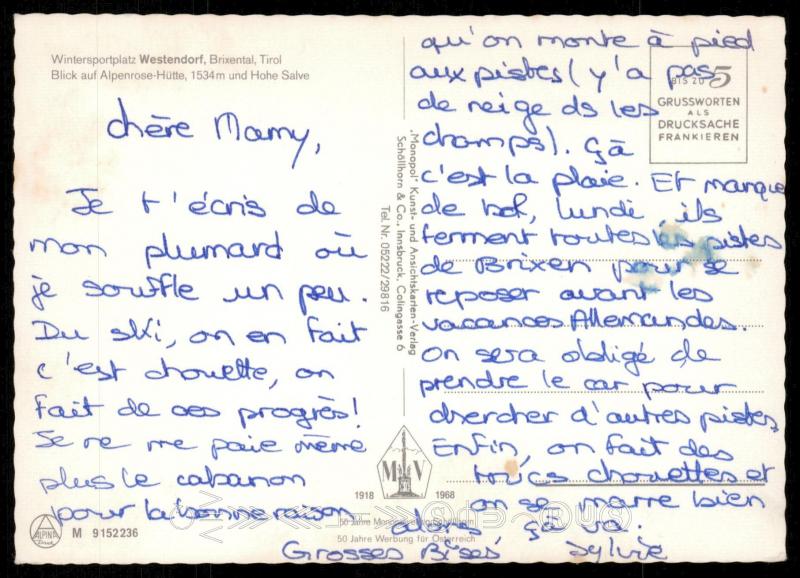 Wintersportplatz Westendorf, Brixental, Tirol
Blick auf Alpenrose-Hütte, 1534m und Hohe Salve
chère Mamy,
Je t'écris de
mon plumard où
je souffle un peu.
Du ski, on en fait
c'est chouette, on
fait de ces progrès!
Je ne me paie même
plus le cabanon
pour la bonne raison
qu'on monte à pied
aux pistes (y'a pas
de neige ds les
champs). çà
c'est la plaie. Et manque
de bol, lundi, ils
ferment toutes les pistes
de Brixen pour se
reposer avant les
vacances Allemandes.
On sera obligé de
prendre le car pour
chercher d'autres pistes.
Enfin, on fait des
trucs chouettes et
on se marre bien
alors çà va.
Grosses Bises Sylvie
BIS ZU 5
GRUSSWORTEN
ALS
DRUCKSACHE
FRANKIEREN
„Monopol" Kunst- und Ansichtskarten-Verlag
Schöllhorn & Co., Innsbruck, Colingasse 6
Tel. Nr. 05222/29816
M V
1918 1968
50 Jahre
50 Jahre Werbung für Österreich
ALPINA
Druck
M 9152236